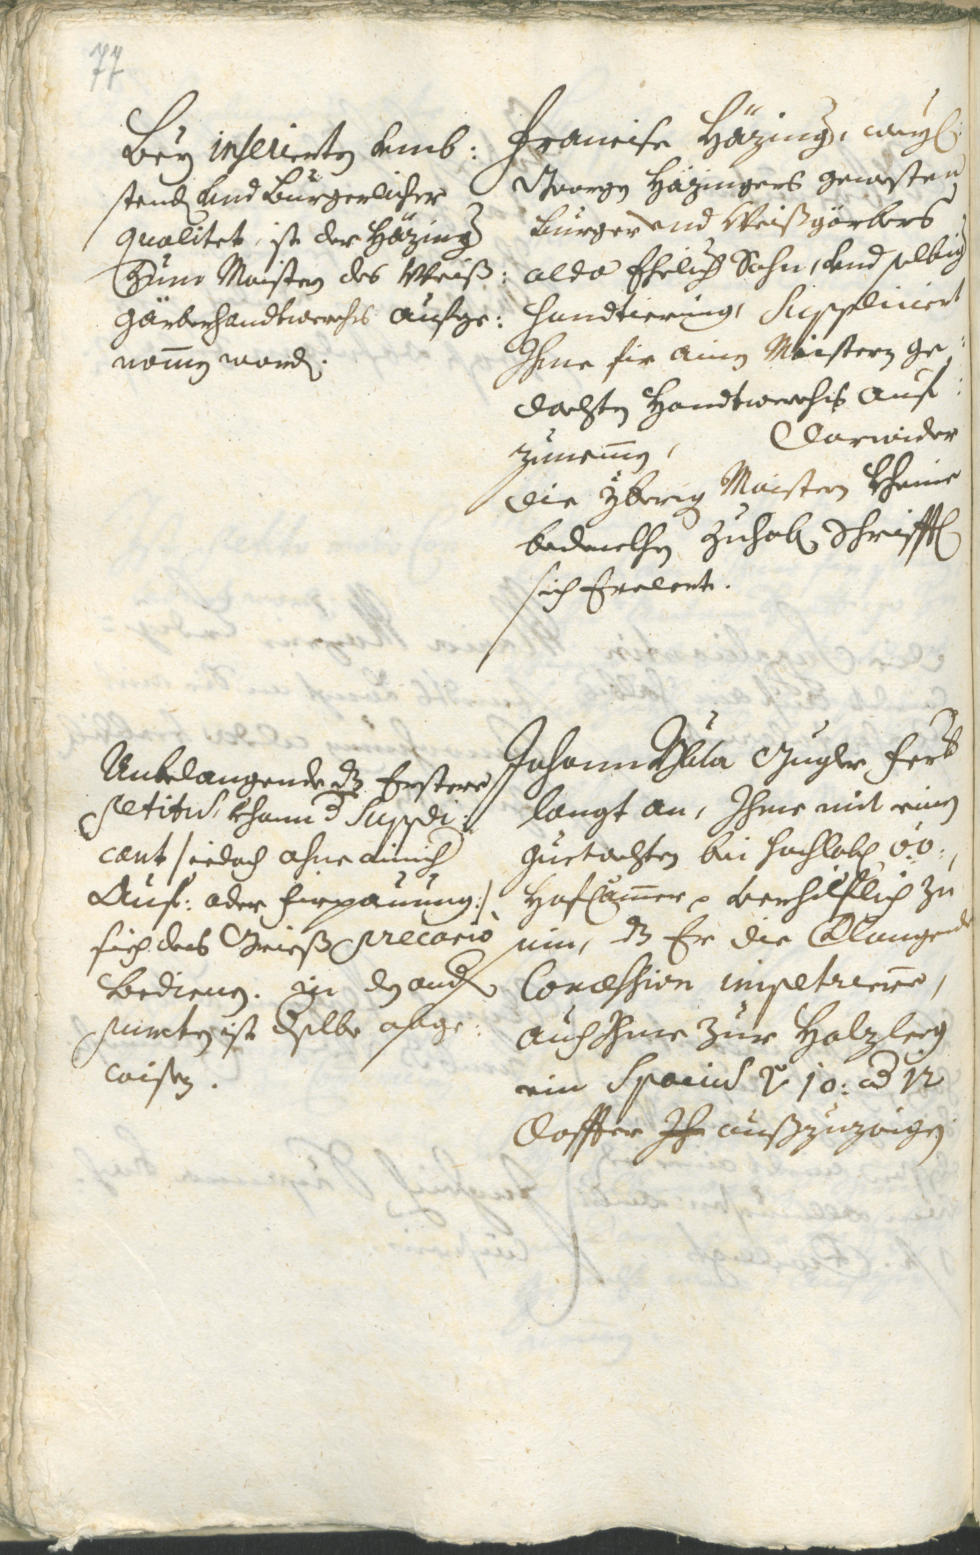 77
Bey inserierten vmb:
stend vnd Burgerlicher
qualitet, ist der Häzing
Zum Maister des Weiß:
gärberhandtwerchs aufge:
nomen word.
Francisc Häzing, weyl:
Georgen Häzingers gewesten
Burger vnd Weißgärbers
alda Ehelich Sohn, vnd selbig
handtierung, Suppliciert
Ihme fir ainen Maistern ge:
dachten Handtwerchs auf:
zunemen, Darwider
die yberig Maister kheine
bedenckhen zuhab, Schrifftl
sich Erclert.
Anbelangende dz Erstere
petitum, khann d Suppli:
cant / iedoch ohne ainich
Auf: oder firpauung: /
sich des Grieß precario
bedienen. In den and
puncten ist dselbe abge:
wisen.
Johann Gugler ferb
langt an, Ihme mit einem
guetachten bei hochlobl: ö:ö:
Hof Camer verhilflich zu
sein, dz Er die
Concession impetrieren,
auch Ihme zur Holzleg
ein Spacium 10: ad 12
Claffter außzuzaigen